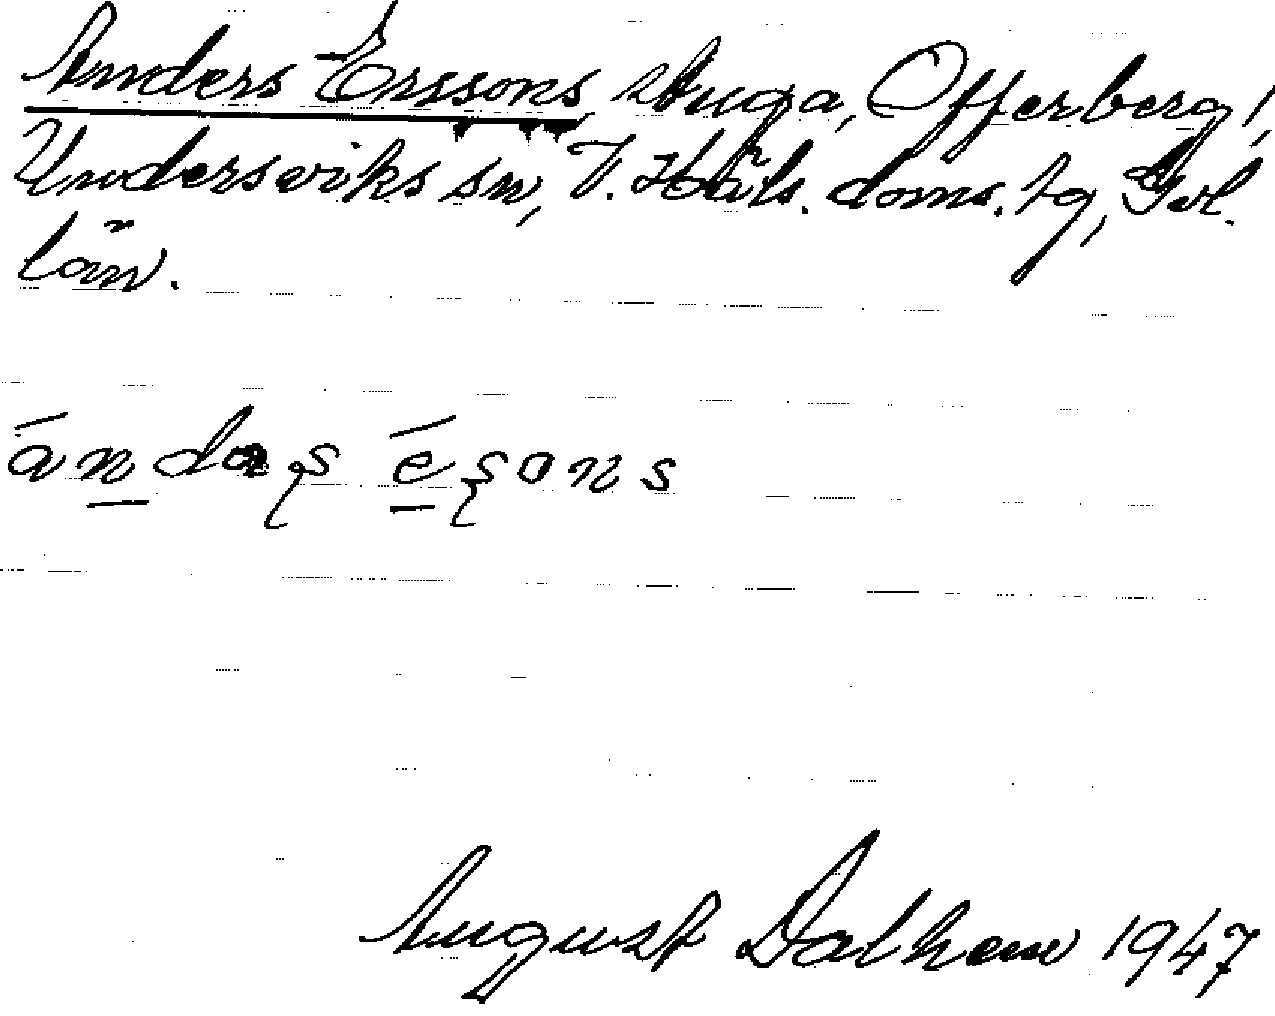 Anders Erssons stuga, Offerberg,
Undersviks sn, V. Häls. doms. tg, Gvl.
län.
ándaʂs éʂons
August Dalhem 1947